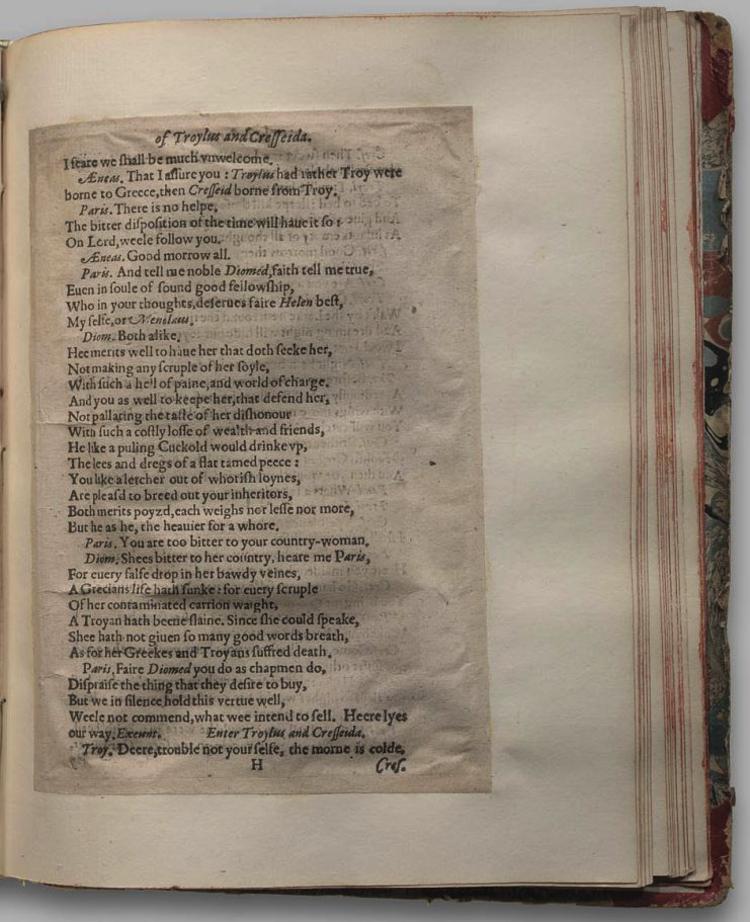 of Troylus and Cresseida.
I feare we shall be much vnwelcome.
Æneas. That I assure you : Troylus had rather Troy were
borne to Greece, then Cresseid borne from Troy.
Paris. There is no helpe,
The bitter disposition of the time will haue it so :
On Lord, weele follow you.
Æneas. Good morrow all.
Paris. And tell me noble Diomed, faith tell me true,
Euen in soule of sound good fellowship,
Who in your thoughts, deserues faire Helen best,
My selfe, or Menelaus.
Diom. Both alike.
Hee merits well to haue her that doth seeke her,
Not making any scruple of her soyle,
With such a hell of paine, and world of charge.
And you as well to keepe her, that defend her,
Not pallating the taste of her dishonour
With such a costly losse of wealth and friends,
He like a puling Cuckold would drinke vp,
The lees and dregs of a flat tamed peece :
You like a letcher out of whorish loynes,
Are pleasd to breed out your inheritors,
Both merits poyzd, each weighs nor lesse nor more,
But he as he, the heauier for a whore.
Paris. You are too bitter to your country-woman.
Diom. Shees bitter to her country, heare me Paris,
For euery false drop in her bawdy veines,
A Grecians life hath sunke : for euery scruple
Of her contaminated carrion waight,
A Troyan hath beene slaine. Since she could speake,
Shee hath not giuen so many good words breath,
As for her Greekes and Troyans suffred death.
Paris. Faire Diomed you do as chapmen do,
Dispraise the thing that they desire to buy,
But we in silence hold this vertue well,
Weele not commend, what wee intend to sell. Heere lyes
our way. Exeunt. Enter Troylus and Cresseida.
Troy. Deere, trouble not your selfe, the morne is colde,
H Cres.